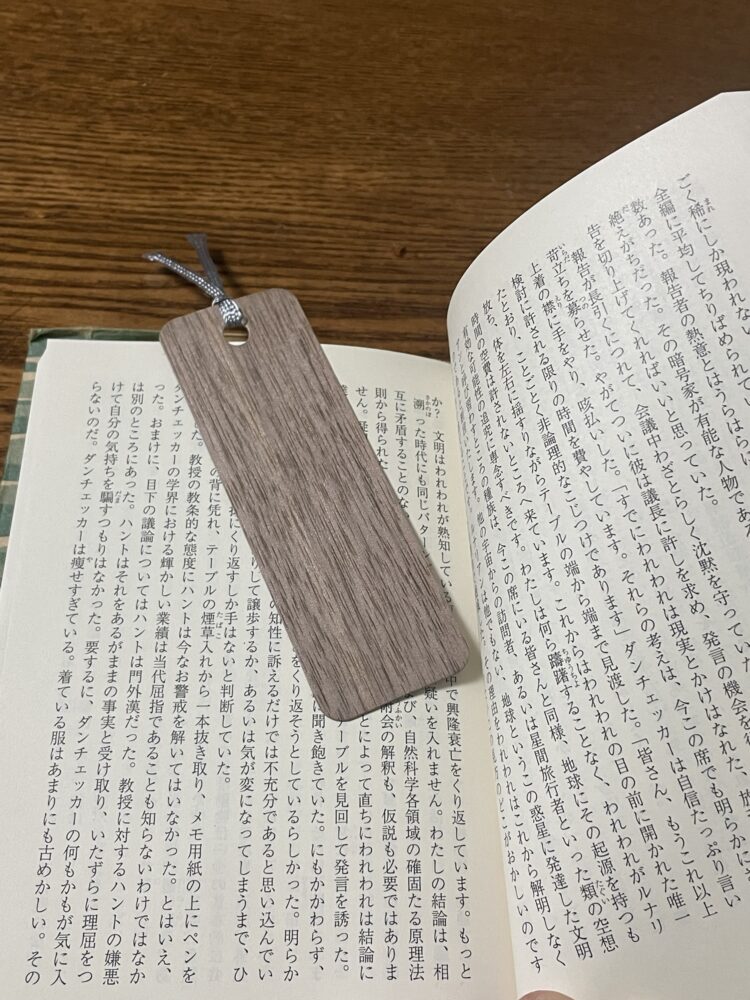 ごく稀にしか現われない
全編に平均してちりばめられて
数あった。報告者の熱意とはうらはらに
絶えがちだった。その暗号家が有能な人物である
告を切り上げてくれればいいと思っていた。
報告が長引くにつれて、会議中わざとらしく沈黙を守ってい
苛立ちを募らせた。やがてついに彼は議長に許しを求め、発言の機会を
上着の襟に手をやり、咳払いした。「すでにわれわれは現実とかけはなれた、
検討に許される限りの時間を費やしています。それらの考えは、今この席でも明らかに
たとおり、ことごとく非論理的なこじつけであります」ダンチェッカーは自信たっぷり言い
放ち、体を左右に揺すりながらテーブルの端から端まで見渡した。「皆さん、もうこれ以上
時間の空費は許されないところへ来ています。これからはわれわれの目の前に開かれた唯一
有効な可能性の追究に専念すべきです。わたしは何ら躊躇することなく、われわれがルナリ
アンと呼び習わすところの種族は、今この席にいる皆さんと同様、地球にその起源を持つも
他の宇宙からの訪問者、あるいは星間旅行者といった類の空想
は他でもない、地球というこの惑星に発達した文明
その理由をわれわれはこれから解明しなく
のどこがおかしいのです
か? 文明はわれわれが熟知している 中で興隆衰亡をくり返しています。もっと
溯った時代にも同じパター 疑いを入れません。わたしの結論は、相
互に矛盾することのな び、自然科学各領域の確固たる原理法
則から得られた 術会の解釈も、仮説も必要ではありま
せん。 とによって直ちにわれわれは結論に
テーブルを見回して発言を誘った。
に聞き飽きていた。にもかかわらず、
をくり返そうとしているらしかった。明らか
の知性に訴えるだけでは不充分であると思い込んでい
りして譲歩するか、あるいは気が変になってしまうまで、ひ
にくり返すしか手はないと判断していた。
の背に凭れ、テーブルの煙草入れから一本抜き取り、メモ用紙の上にペンを
た。教授の教条的な態度にハントは今なお警戒を解いてはいなかった。とはいえ、
ダンチェッカーの学界における輝かしい業績は当代屈指であることも知らないわけではなか
った。おまけに、目下の議論についてはハントは門外漢だった。教授に対するハントの嫌悪
は別のところにあった。ハントはそれをあるがままの事実と受け取り、いたずらに理屈をつ
けて自分の気持ちを騙すつもりはなかった。要するに、ダンチェッカーの何もかもが気に入
らないのだ。ダンチェッカーは痩せすぎている。着ている服はあまりにも古めかしい。その